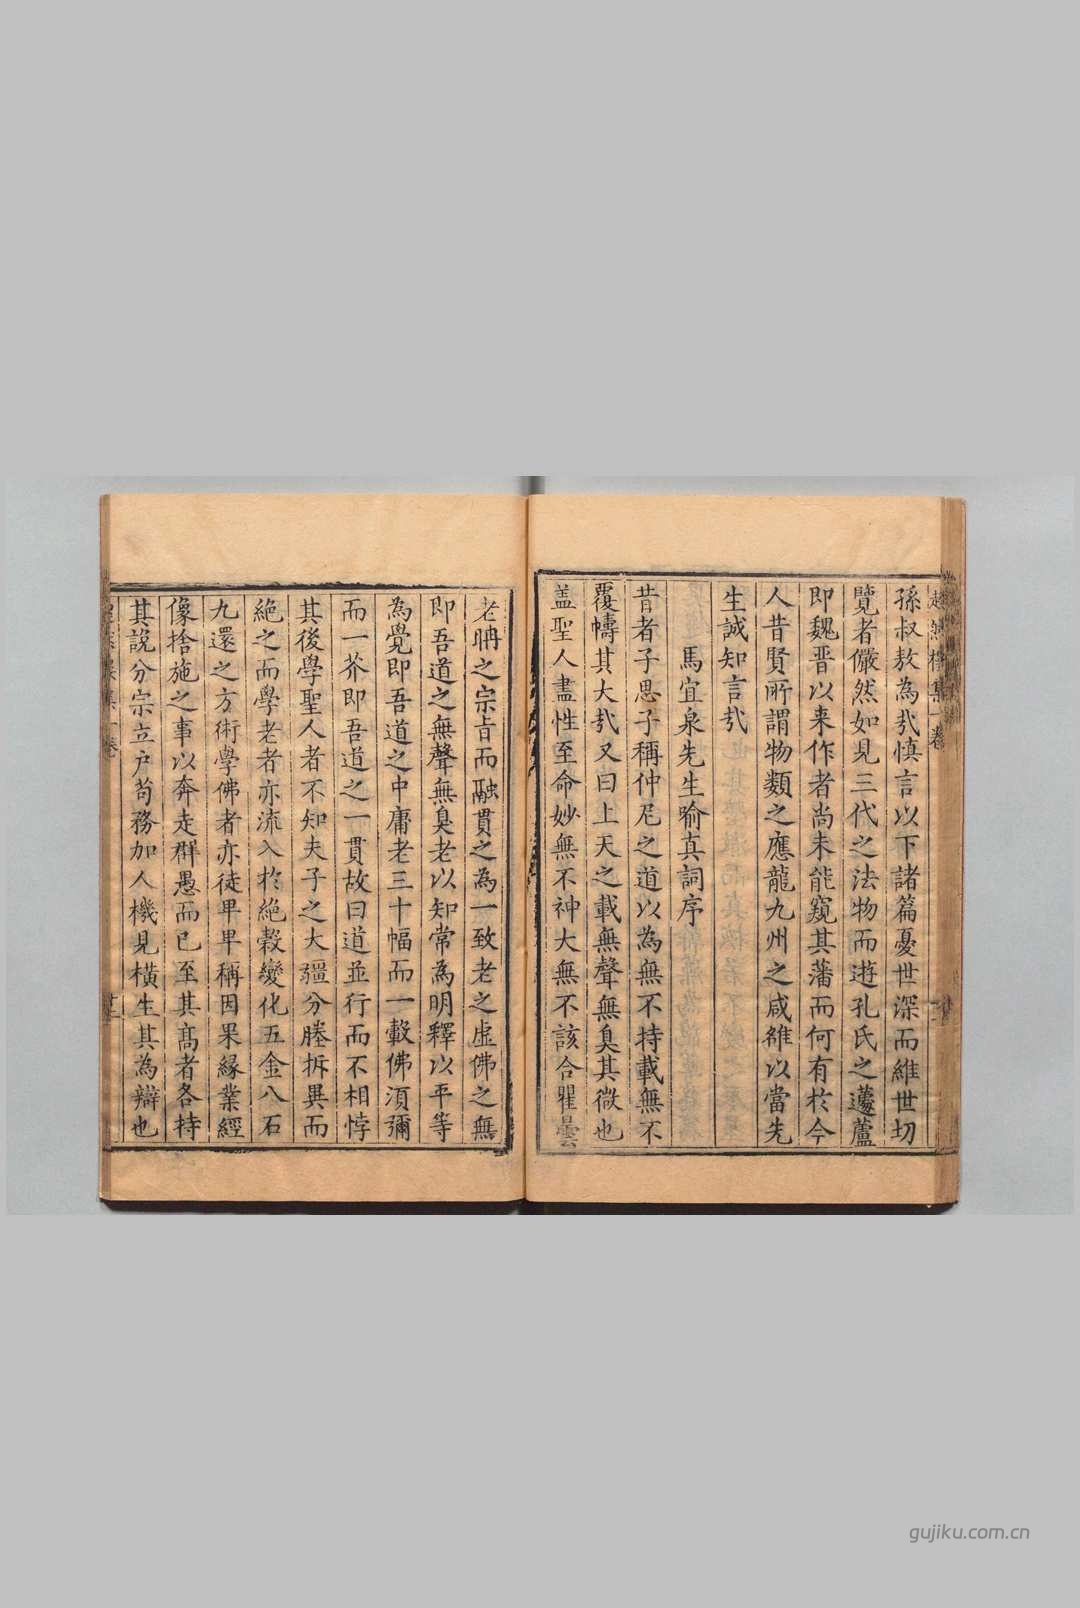 孫叔敖為㢤慎言以下諸篇憂世深而維世切
覽者儼然如見三代之法物而遊孔氏之蘧廬
即魏晋以来作者尚未能窺其藩而何有扵今
人昔賢所謂物類之應龍九州之咸雒以當先
生誠知言㢤
馬宜泉先生喻真詞序
昔者子思子稱仲尼之道以為無不持載無不
覆幬其大㢤又曰上天之載無聲無臭其微也
盖聖人盡性至命妙無不神大無不該合瞿曇
老聃之宗旨而融貫之為一致老之虛佛之無
即吾道之無聲無臭老以知常為明釋以平等
為覺即吾道之中庸老三十幅而一轂佛湏彌
而一芥即吾道之一貫故曰道並行而不相悖
其後學聖人者不知夫子之大疆分塍拆異而
絶之而學老者亦流入扵絶穀變化五金八石
九還之方術學佛者亦徒早早稱因果緣業經
像捨施之事以奔走群愚而已至其髙者各持
其說分宗立户苟務加人機見橫生其為辯也
gujiku.com.cn